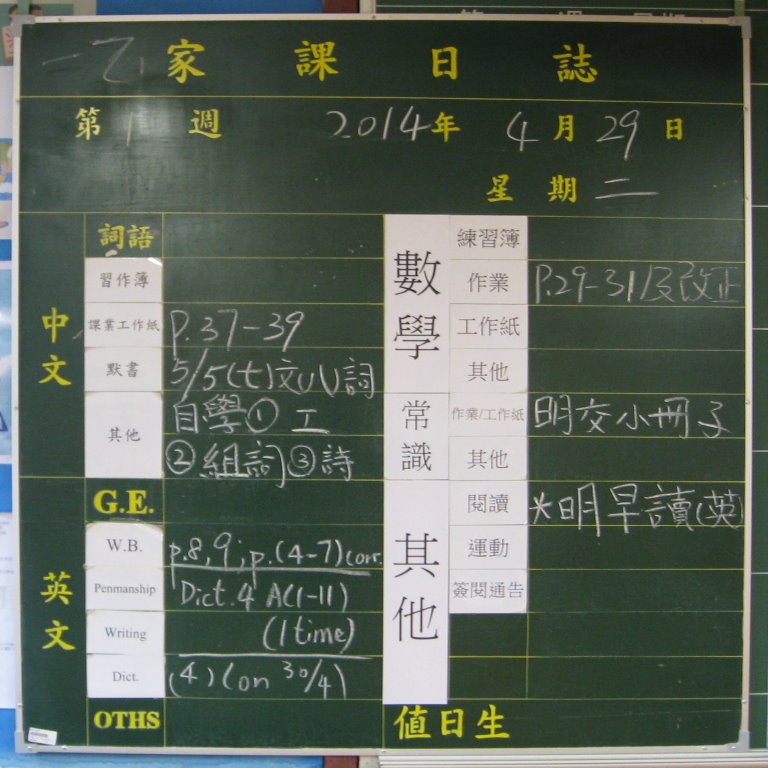 一乙 家課日誌
第1週 2014年4月29日
星期二
中文
詞語
習作簿
課業工作紙 P.37-39
默書 5/5(七)文(八)詞
其他 自學① 工
②組詞③詩
英文
G.E.
W.B. p.8,9; p.(4-7)corr.
Penmanship Dict.4 A(1-11)
Writing (1 time)
Dict. (4)(on 30/4)
OTHS
數學
練習簿
作業 P.29-31及改正
工作紙
其他
常識
作業/工作紙 明交小冊子
其他
其他
閱讀 *明早讀(英)
運動
簽閱通告
值日生